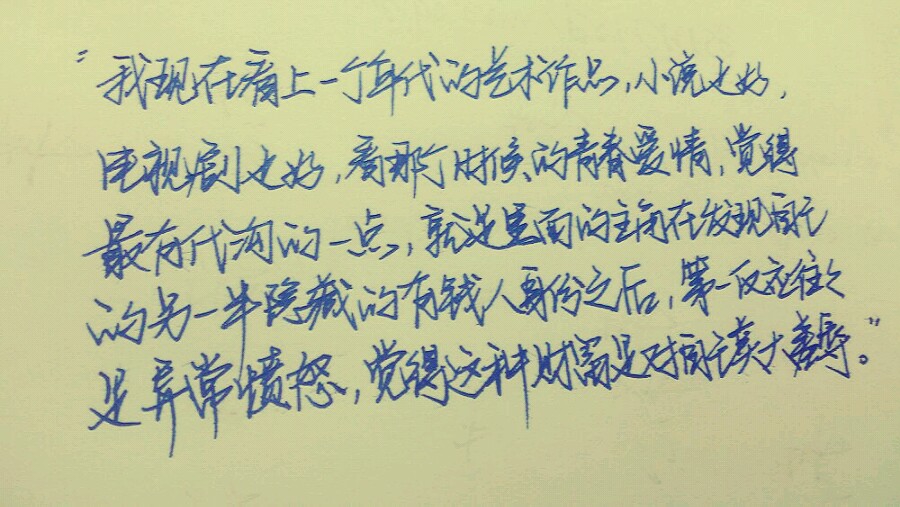 “我现在看上一个年代的艺术作品，小说也好，
电视剧也好，看那个时候的青春爱情，觉得
最有代沟的一点，就是里面的主角在发现自己
的另一半隐藏的有钱人身份之后，第一反应往往
是异常愤怒，觉得这种财富是对自己莫大羞辱。”